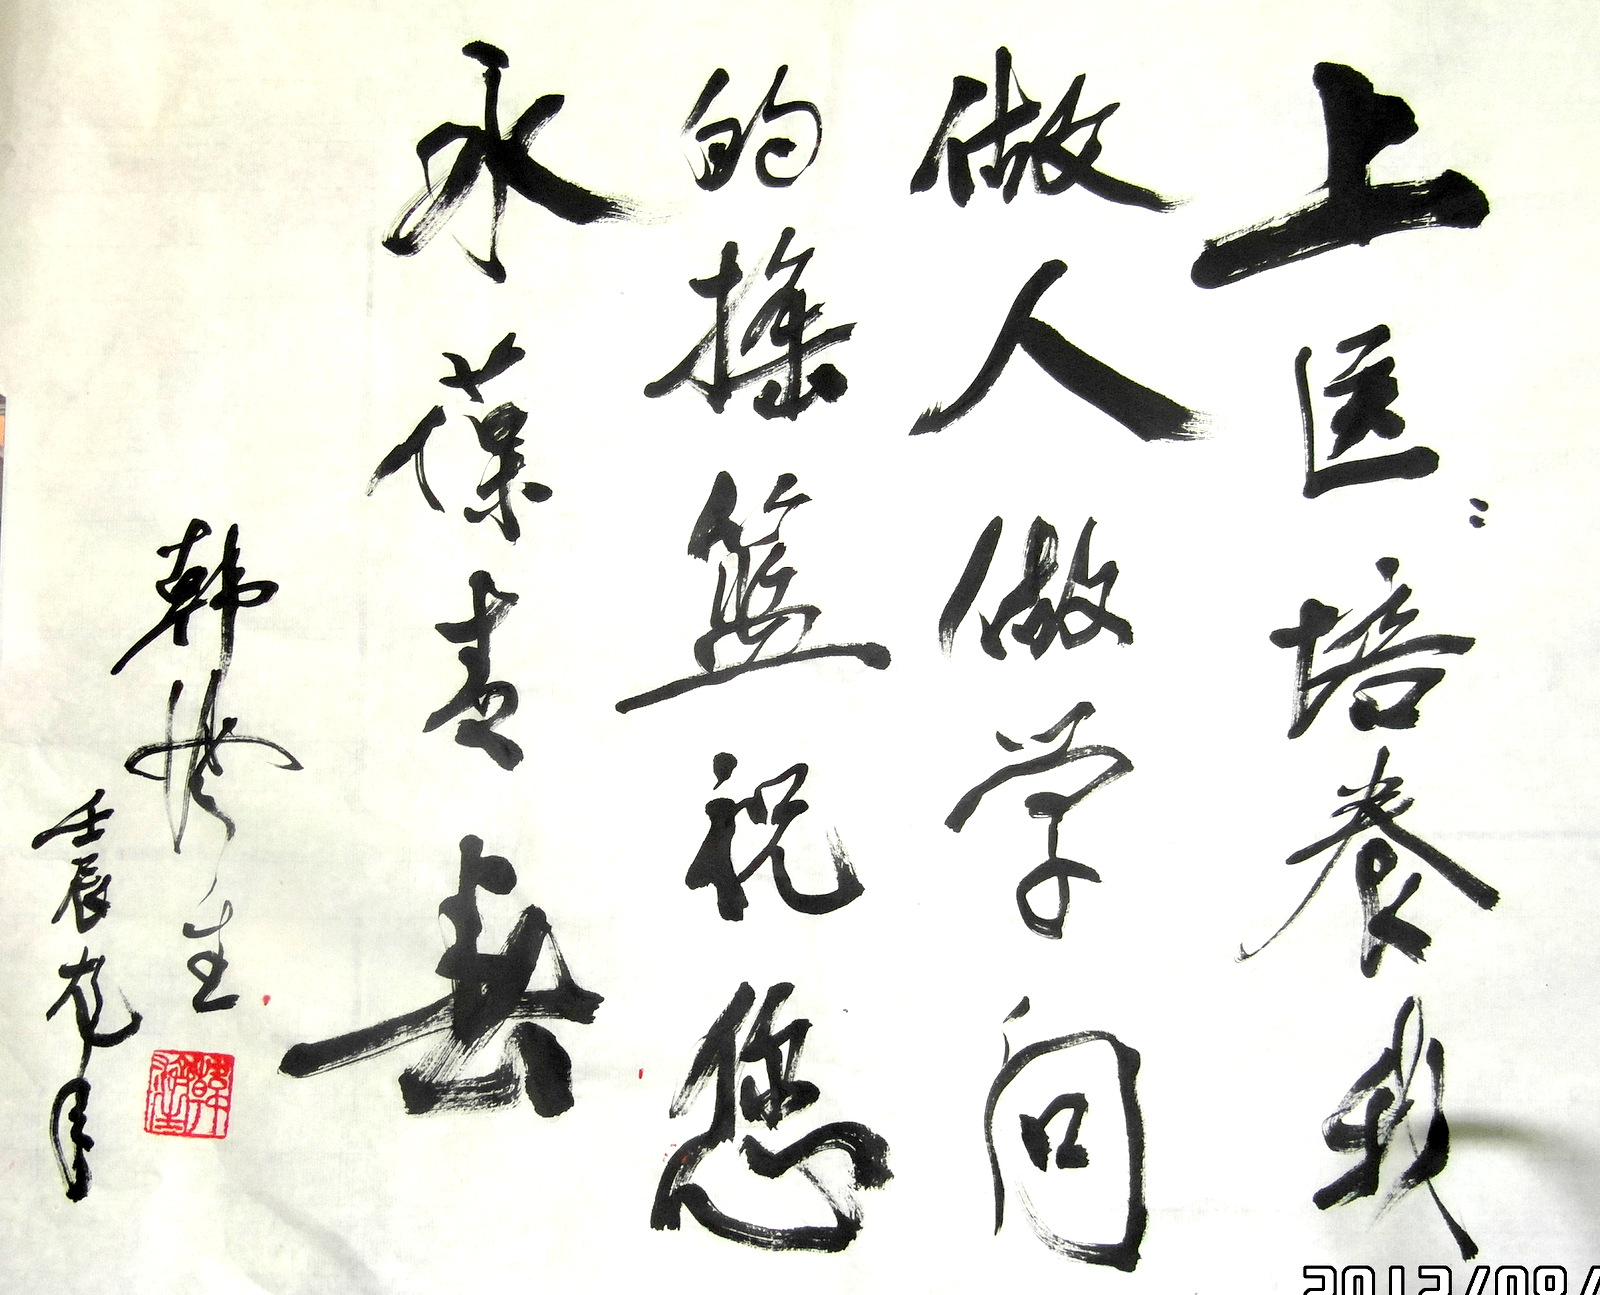 上医：培养我
做人做学问
的摇篮祝您
永葆青春
韩
生
壬辰龙年